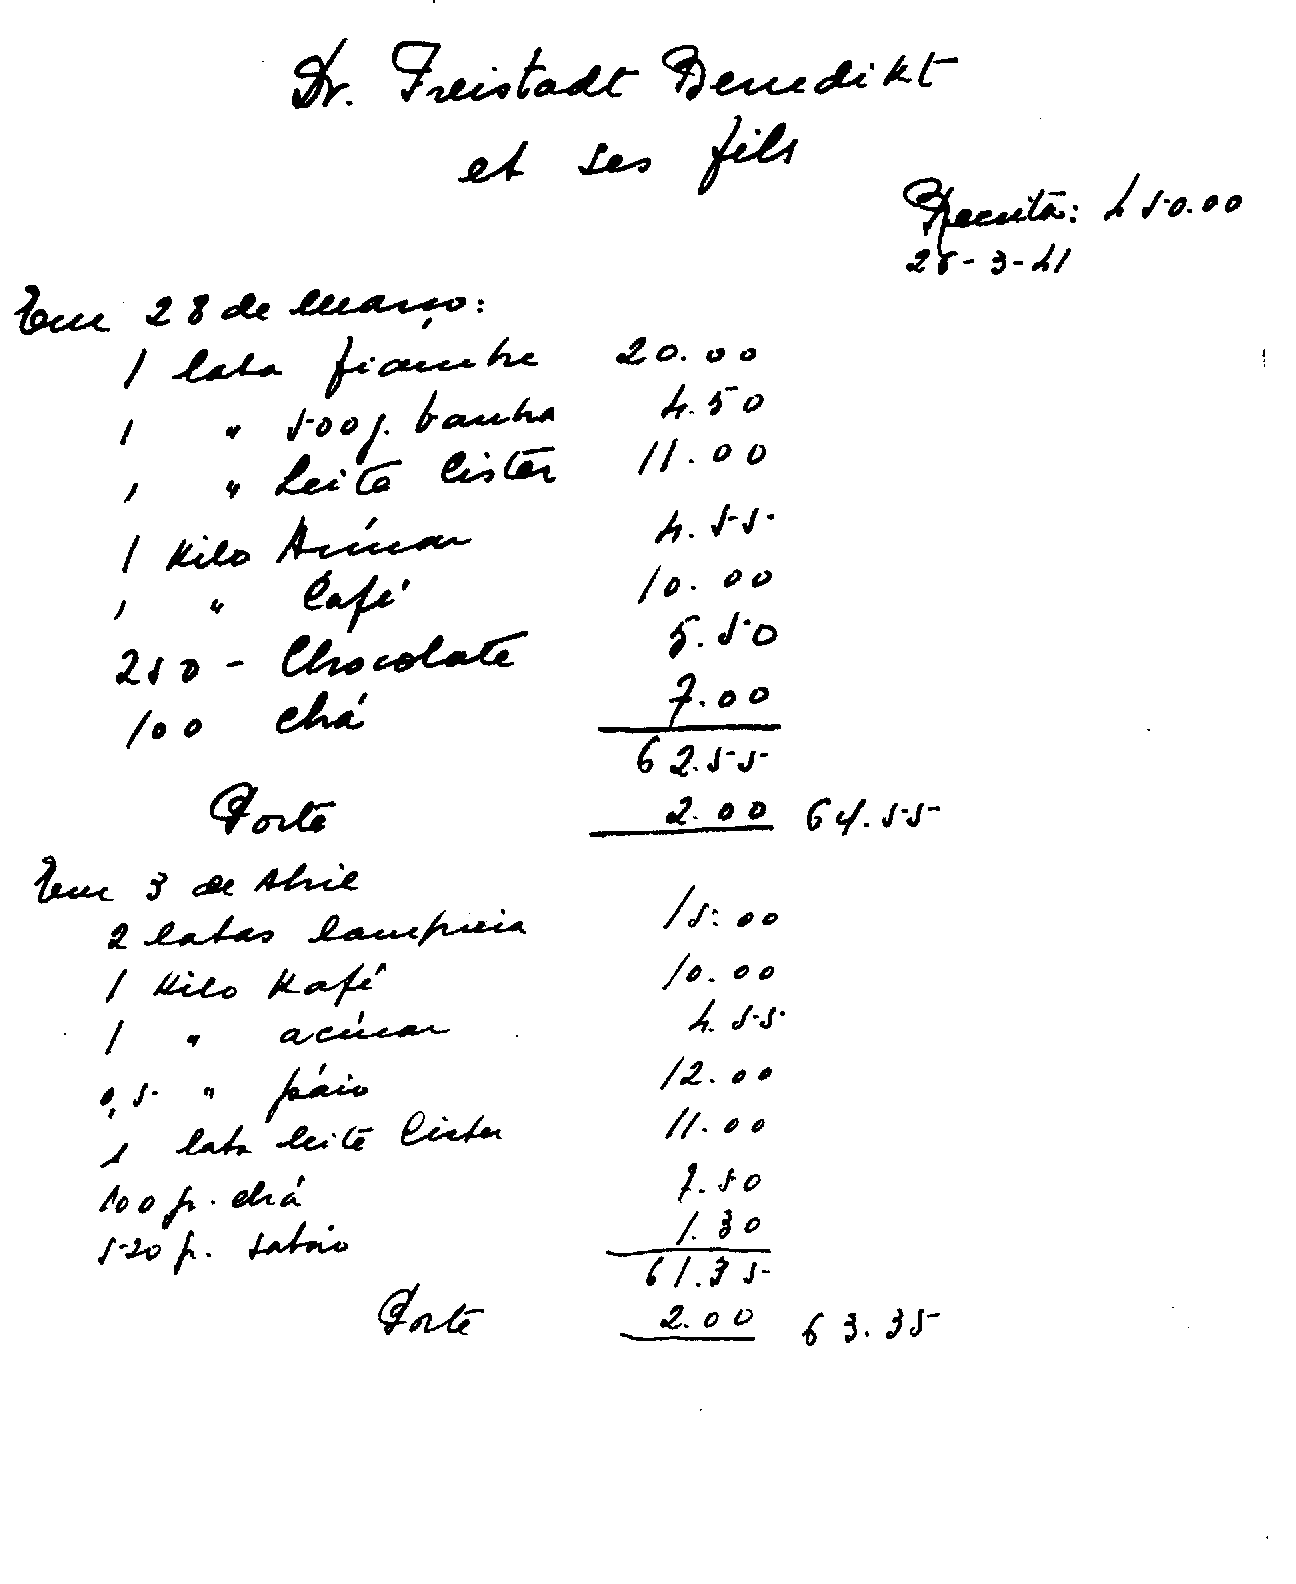 Dr. Freistadt Benedikt
et ses fils
Receita: 450.00
28-3-41
Em 28 de Março:
1 lata fiambre 20.00
1 " 500 g. banha 4.50
1 " Leite Cister 11.00
1 Kilo Açúcar 4.55
1 " Café 10.00
250 - Chocolate 5.50
100 chá 7.00
62.55
Porte 2.00 64.55
Em 3 de Abril
2 latas lampreia 15.00
1 Kilo Kafé 10.00
1 " açúcar 4.55
0,5 " páio 12.00
1 lata leite Cister 11.00
100 gr. chá 7.50
520 gr. sabão 1.30
61.35
Porte 2.00 63.35